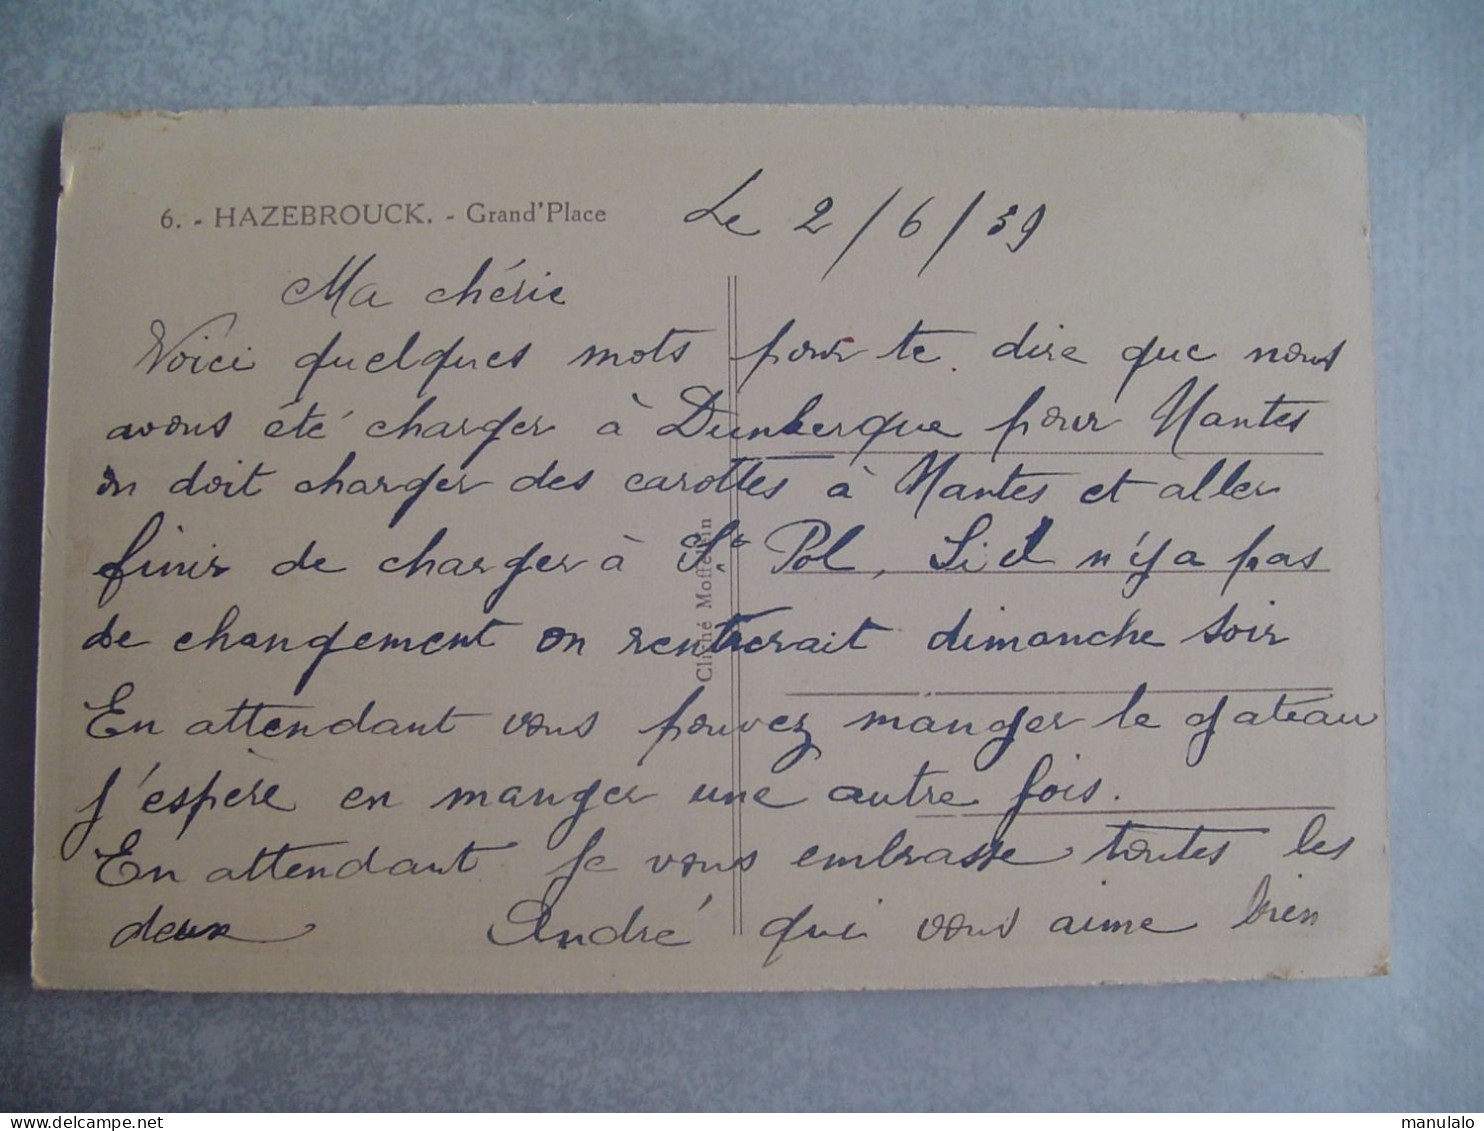 6. - HAZEBROUCK. - Grand'Place
Le 2/6/39
Ma chérie
Voici quelques mots pour te dire que nous
avons été charger à Dunkerque pour Nantes
on doit charger des carottes à Nantes et aller
finir de charger à St Pol, Si il n'y a pas
de changement on rentrerait dimanche soir
En attendant vous pouvez manger le gateau
j'espère en manger une autre fois.
En attendant Je vous embrasse toutes les
deux André qui vous aime bien
Cliché Moffelein
www.delcampe.net
manulalo